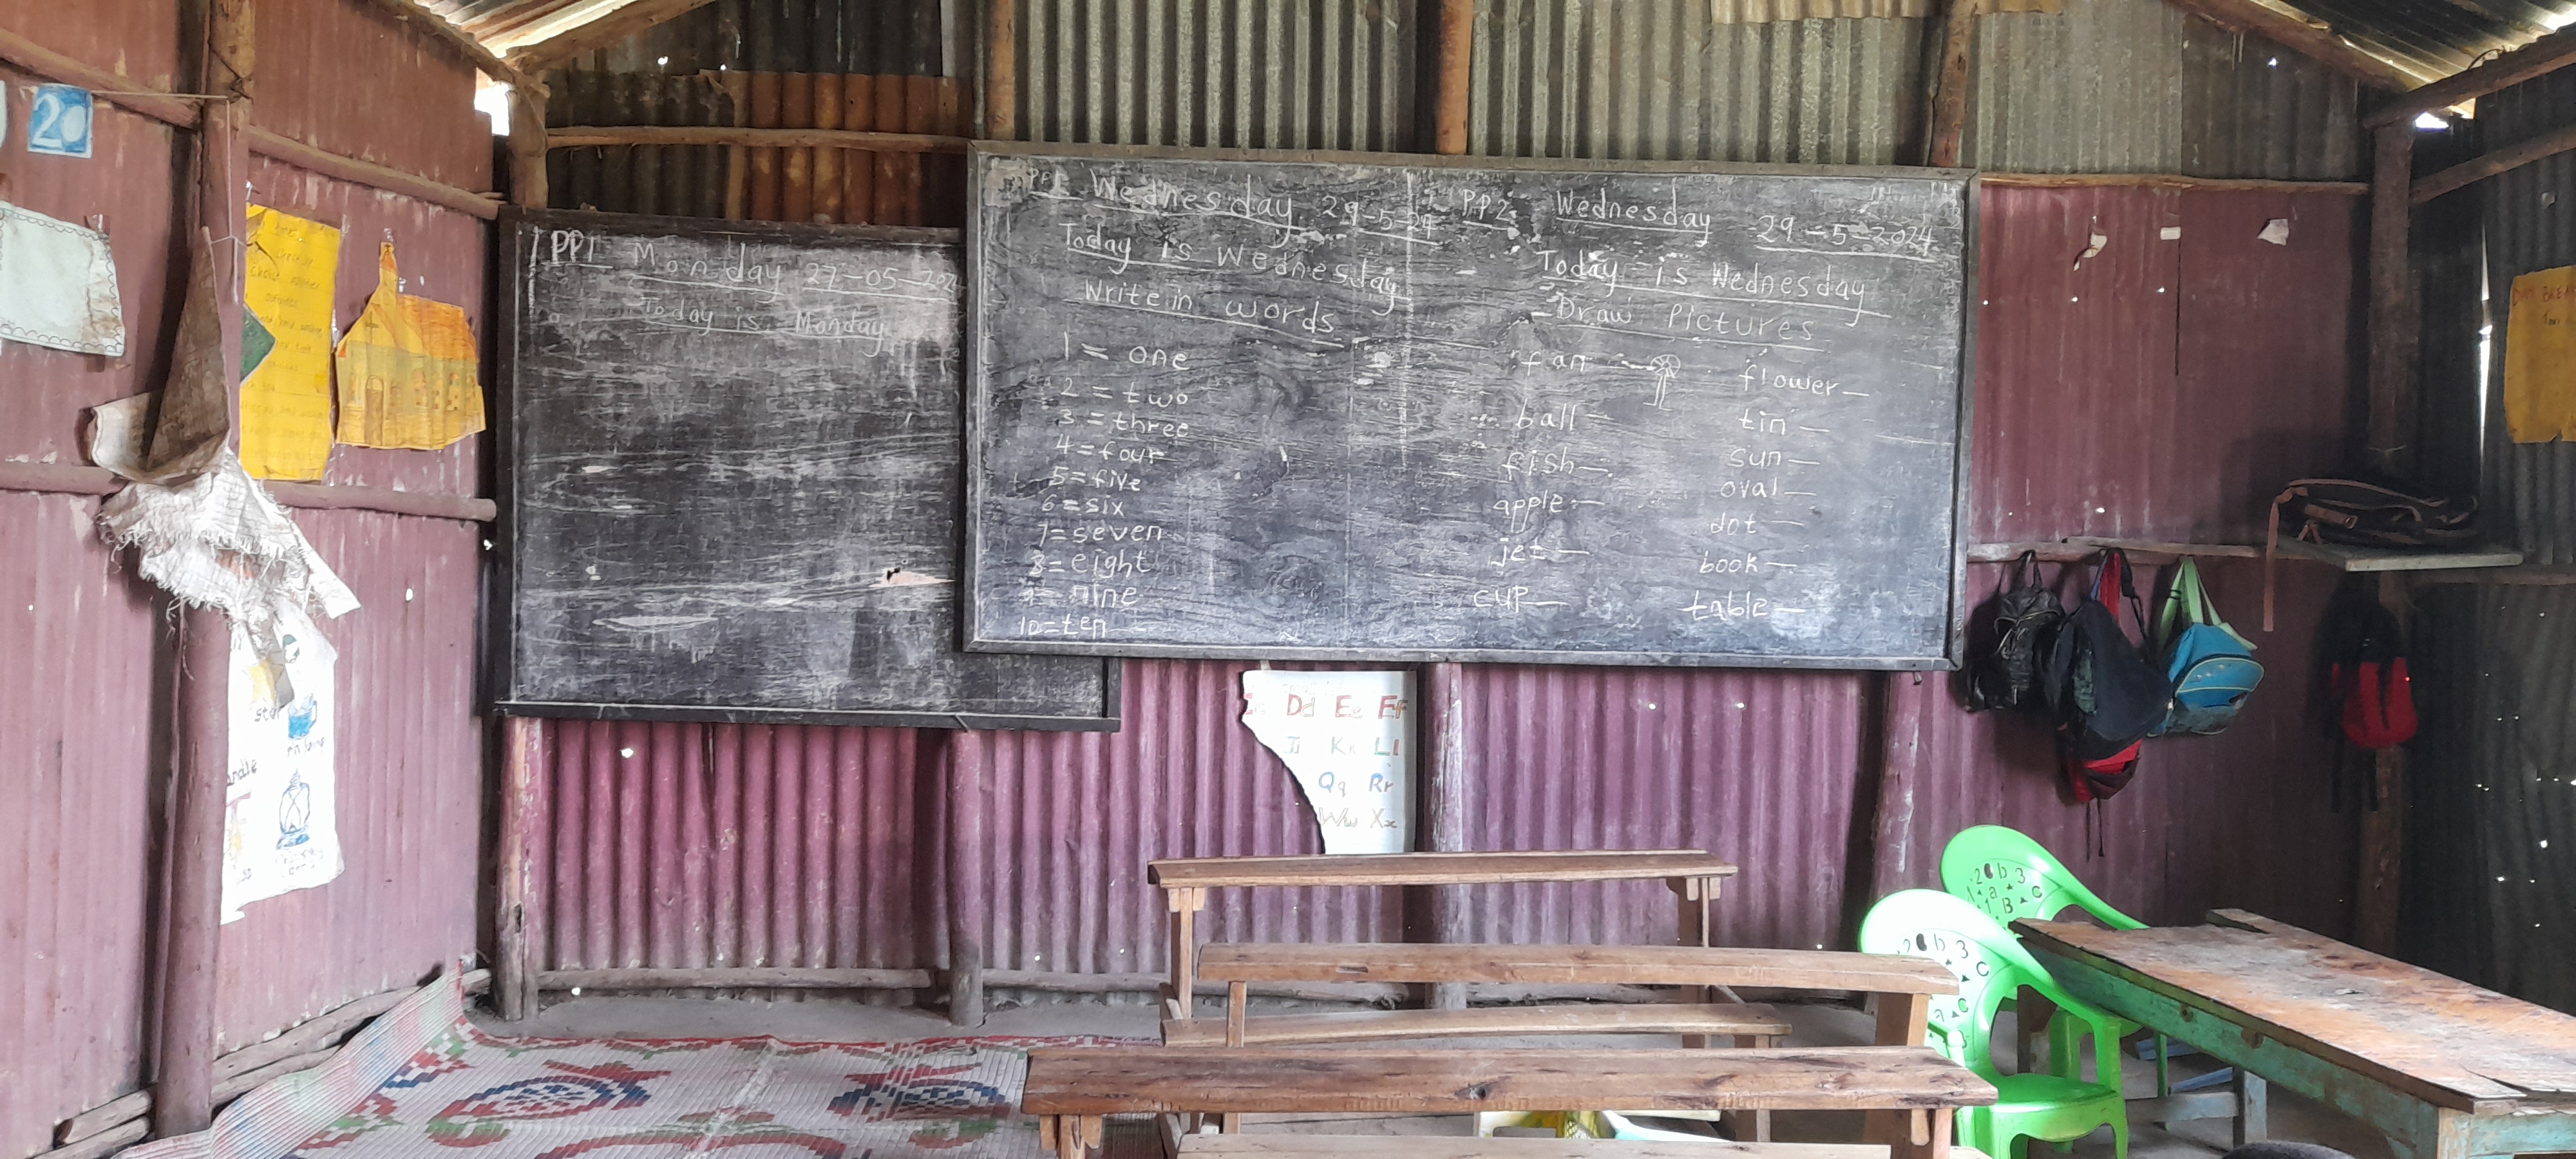 20
PP1 Monday 27-05-202
Today is Monday
PP1 Wednesday 29-5-24
Today is Wednesday
Write in words
1 = one
2 = two
3 = three
4 = four
5 = five
6 = six
7 = seven
8 = eight
9 = nine
10 = ten
PP2 Wednesday 29-5-2024
Today is Wednesday
Draw Pictures
fan
ball
fish
apple
jet
cup
flower
tin
sun
oval
dot
book
table
Dd Ee Ff
Kk Ll
Qq Rr
Ww Xx
star
2 b 3
a C
B
2 b 3
C
a